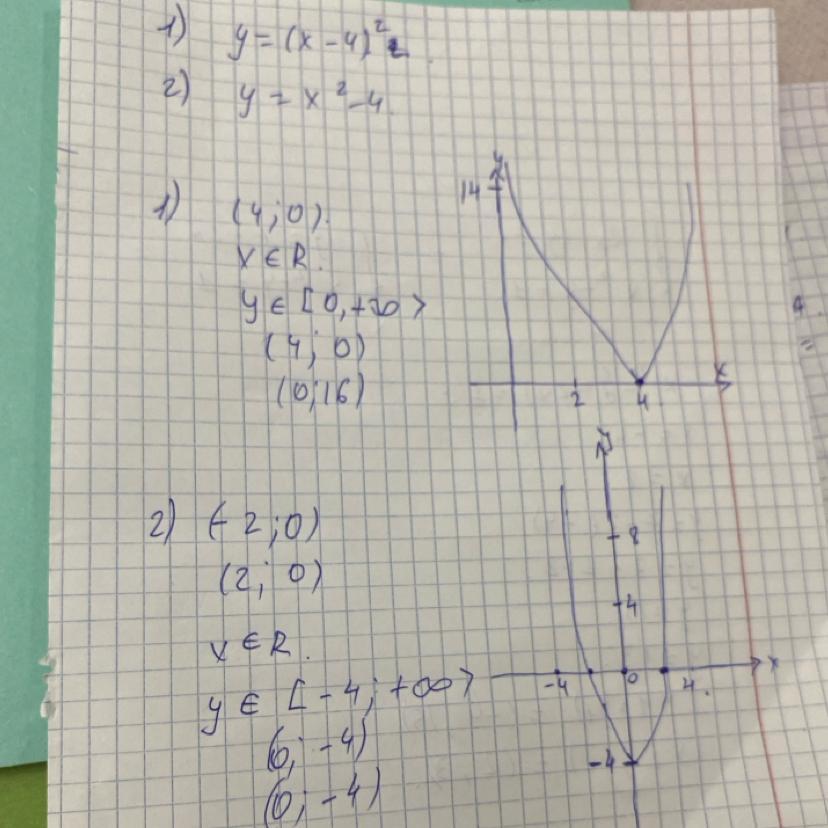 1) y = (x - 4)²
2) y = x² - 4.
1) (4; 0).
x ∈ R.
y ∈ [0, +∞>
(4; 0)
(0; 16)
y
14
2
4
x
2) (-2; 0)
(2; 0)
x ∈ R.
y ∈ [-4; +∞>
(0; -4)
(0; -4)
y
8
4
-4
0
4.
x
-4